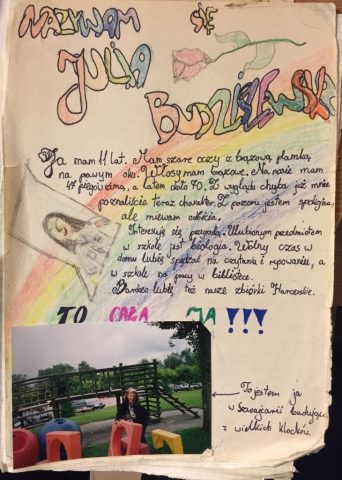 NAZYWAM SIĘ
JULIA
BUDZISZEWSKA
Ja mam 11 lat. Mam szare oczy z brązową plamką
na prawym oku. Włosy mam brązowe. Na nosie mam
47 piegów zimą, a latem około 70. Z wyglądu chyba już mnie
poznaliście teraz charakter. Z pozoru jestem spokojna,
ale miewam odbicia.
Interesuję się przyrodą. Ulubionym przedmiotem
w szkole jest biologia. Wolny czas w
domu lubię spędzać na czytaniu i rysowaniu, a
w szkole na pracy w bibliotece.
Bardzo lubię też nasze zbiórki Harcerskie.
TO CAŁA JA !!!
To jestem ja
w Szwajcarii budująca
z wielkich klocków.